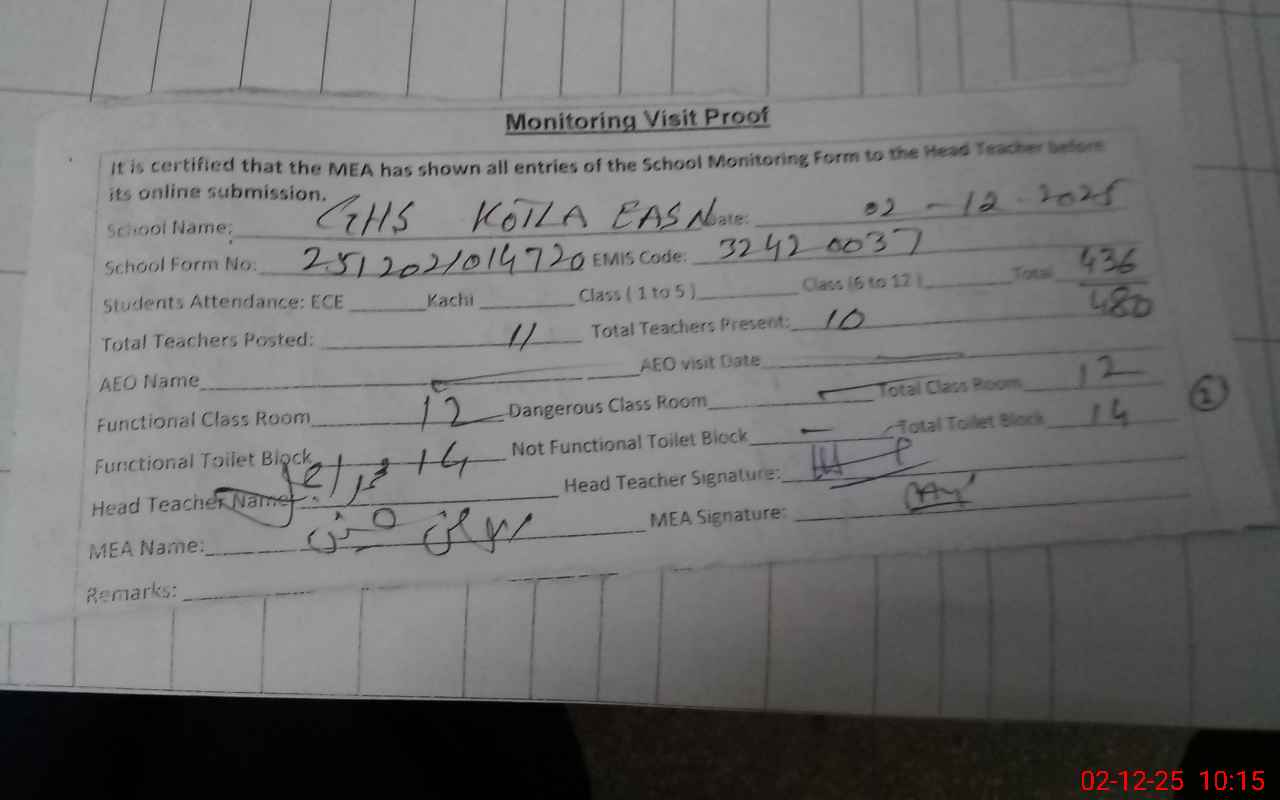 Monitoring Visit Proof
It is certified that the MEA has shown all entries of the School Monitoring Form to the Head Teacher before
its online submission.
School Name: GHS KOTLA EASN Date: 02-12-2025
School Form No: 2512021014720 EMIS Code: 32420037
Students Attendance: ECE Kachi Class ( 1 to 5 ) Class (6 to 12 ) Total 436
480
Total Teachers Posted: 11 Total Teachers Present: 10
AEO Name AEO visit Date
Functional Class Room 12 Dangerous Class Room Total Class Room 12
Functional Toilet Block 14 Not Functional Toilet Block Total Toilet Block 14
Head Teacher Name: Head Teacher Signature:
MEA Name: MEA Signature:
Remarks:
02-12-25 10:15